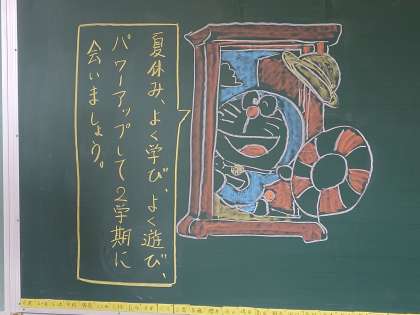 夏休み、よく学び、よく遊び、
パワーアップして2学期に
会いましょう。